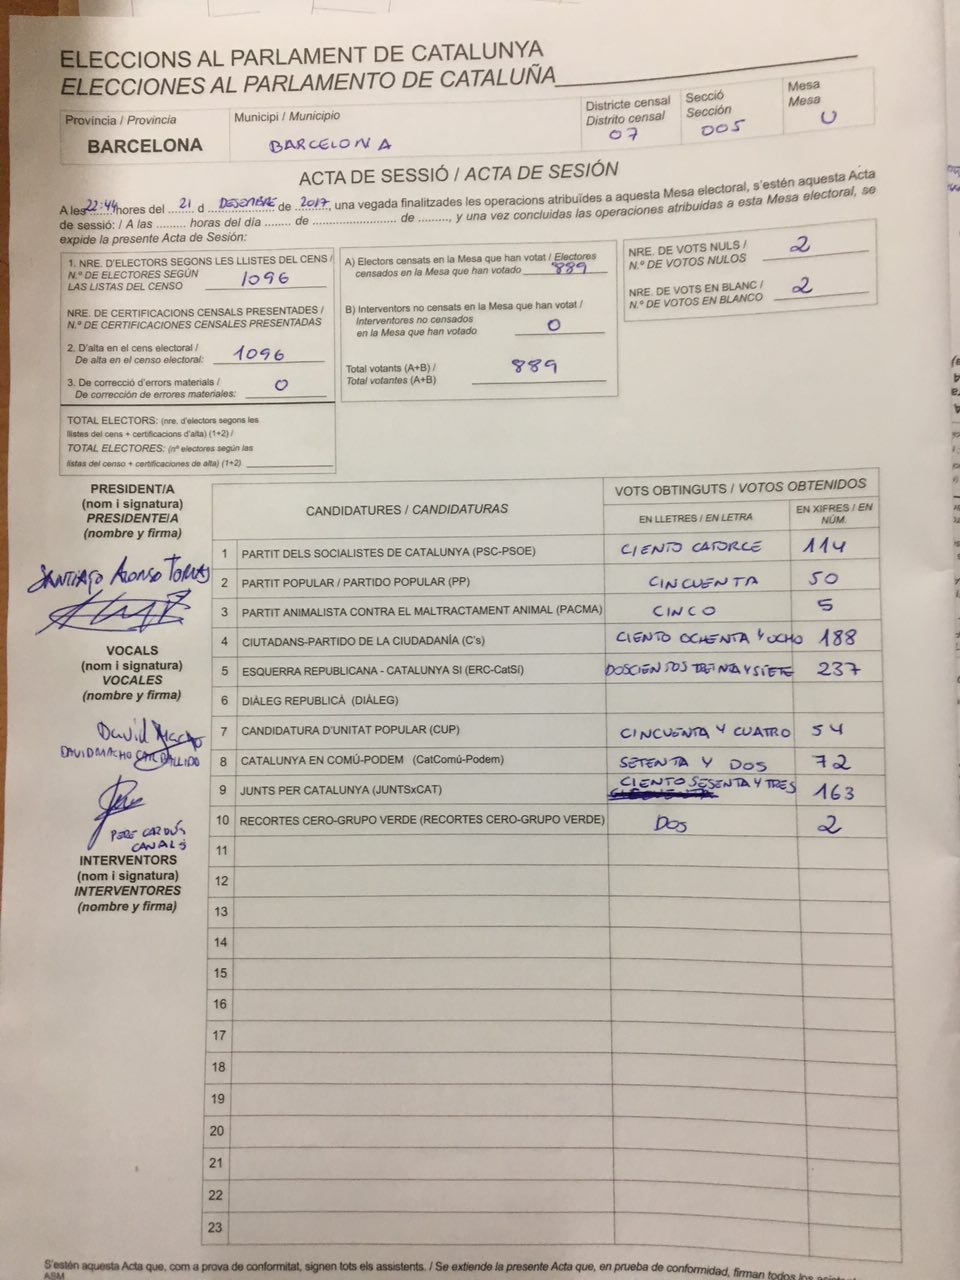 ELECCIONS AL PARLAMENT DE CATALUNYA
ELECCIONES AL PARLAMENTO DE CATALUÑA
Província / Provincia
BARCELONA
Municipi / Municipio
BARCELONA
Districte censal
Distrito censal
07
Secció
Sección
005
Mesa
Mesa
U
ACTA DE SESSIÓ / ACTA DE SESIÓN
A les 22:44 hores del 21 d DESEMBRE de 2017, una vegada finalitzades les operacions atribuïdes a aquesta Mesa electoral, s'estén aquesta Acta
de sessió: / A las ......... horas del día ........ de .................... de ........, y una vez concluidas las operaciones atribuidas a esta Mesa electoral, se
expide la presente Acta de Sesión:
1. NRE. D'ELECTORS SEGONS LES LLISTES DEL CENS /
N.º DE ELECTORES SEGÚN
LAS LISTAS DEL CENSO 1096
NRE. DE CERTIFICACIONS CENSALS PRESENTADES /
N.º DE CERTIFICACIONES CENSALES PRESENTADAS
2. D'alta en el cens electoral /
De alta en el censo electoral: 1096
3. De correcció d'errors materials /
De corrección de errores materiales: 0
TOTAL ELECTORS: (nre. d'electors segons les
llistes del cens + certificacions d'alta) (1+2) /
TOTAL ELECTORES: (nº electores según las
listas del censo + certificaciones de alta) (1+2)
A) Electors censats en la Mesa que han votat / Electores
censados en la Mesa que han votado 889
B) Interventors no censats en la Mesa que han votat /
Interventores no censados
en la Mesa que han votado 0
Total votants (A+B) /
Total votantes (A+B) 889
NRE. DE VOTS NULS /
N.º DE VOTOS NULOS 2
NRE. DE VOTS EN BLANC /
N.º DE VOTOS EN BLANCO 2
PRESIDENT/A
(nom i signatura)
PRESIDENTE/A
(nombre y firma)
SANTIAGO ALONSO TOMAS
VOCALS
(nom i signatura)
VOCALES
(nombre y firma)
David Macho
DAVID MACHO CARBALLIDO
PERE CARDÚS
CANALS
INTERVENTORS
(nom i signatura)
INTERVENTORES
(nombre y firma)
CANDIDATURES / CANDIDATURAS
VOTS OBTINGUTS / VOTOS OBTENIDOS
EN LLETRES / EN LETRA
EN XIFRES / EN
NÚM.
1 PARTIT DELS SOCIALISTES DE CATALUNYA (PSC-PSOE) CIENTO CATORCE 114
2 PARTIT POPULAR / PARTIDO POPULAR (PP) CINCUENTA 50
3 PARTIT ANIMALISTA CONTRA EL MALTRACTAMENT ANIMAL (PACMA) CINCO 5
4 CIUTADANS-PARTIDO DE LA CIUDADANÍA (C's) CIENTO OCHENTA Y OCHO 188
5 ESQUERRA REPUBLICANA - CATALUNYA SI (ERC-CatSí) DOSCIENTOS TREINTA Y SIETE 237
6 DIÀLEG REPUBLICÀ (DIÀLEG)
7 CANDIDATURA D'UNITAT POPULAR (CUP) CINCUENTA Y CUATRO 54
8 CATALUNYA EN COMÚ-PODEM (CatComú-Podem) SETENTA Y DOS 72
9 JUNTS PER CATALUNYA (JUNTSxCAT) CIENTO SESENTA Y TRES 163
10 RECORTES CERO-GRUPO VERDE (RECORTES CERO-GRUPO VERDE) DOS 2
11
12
13
14
15
16
17
18
19
20
21
22
23
S'estén aquesta Acta que, com a prova de conformitat, signen tots els assistents. / Se extiende la presente Acta que, en prueba de conformidad, firman todos los
ASM